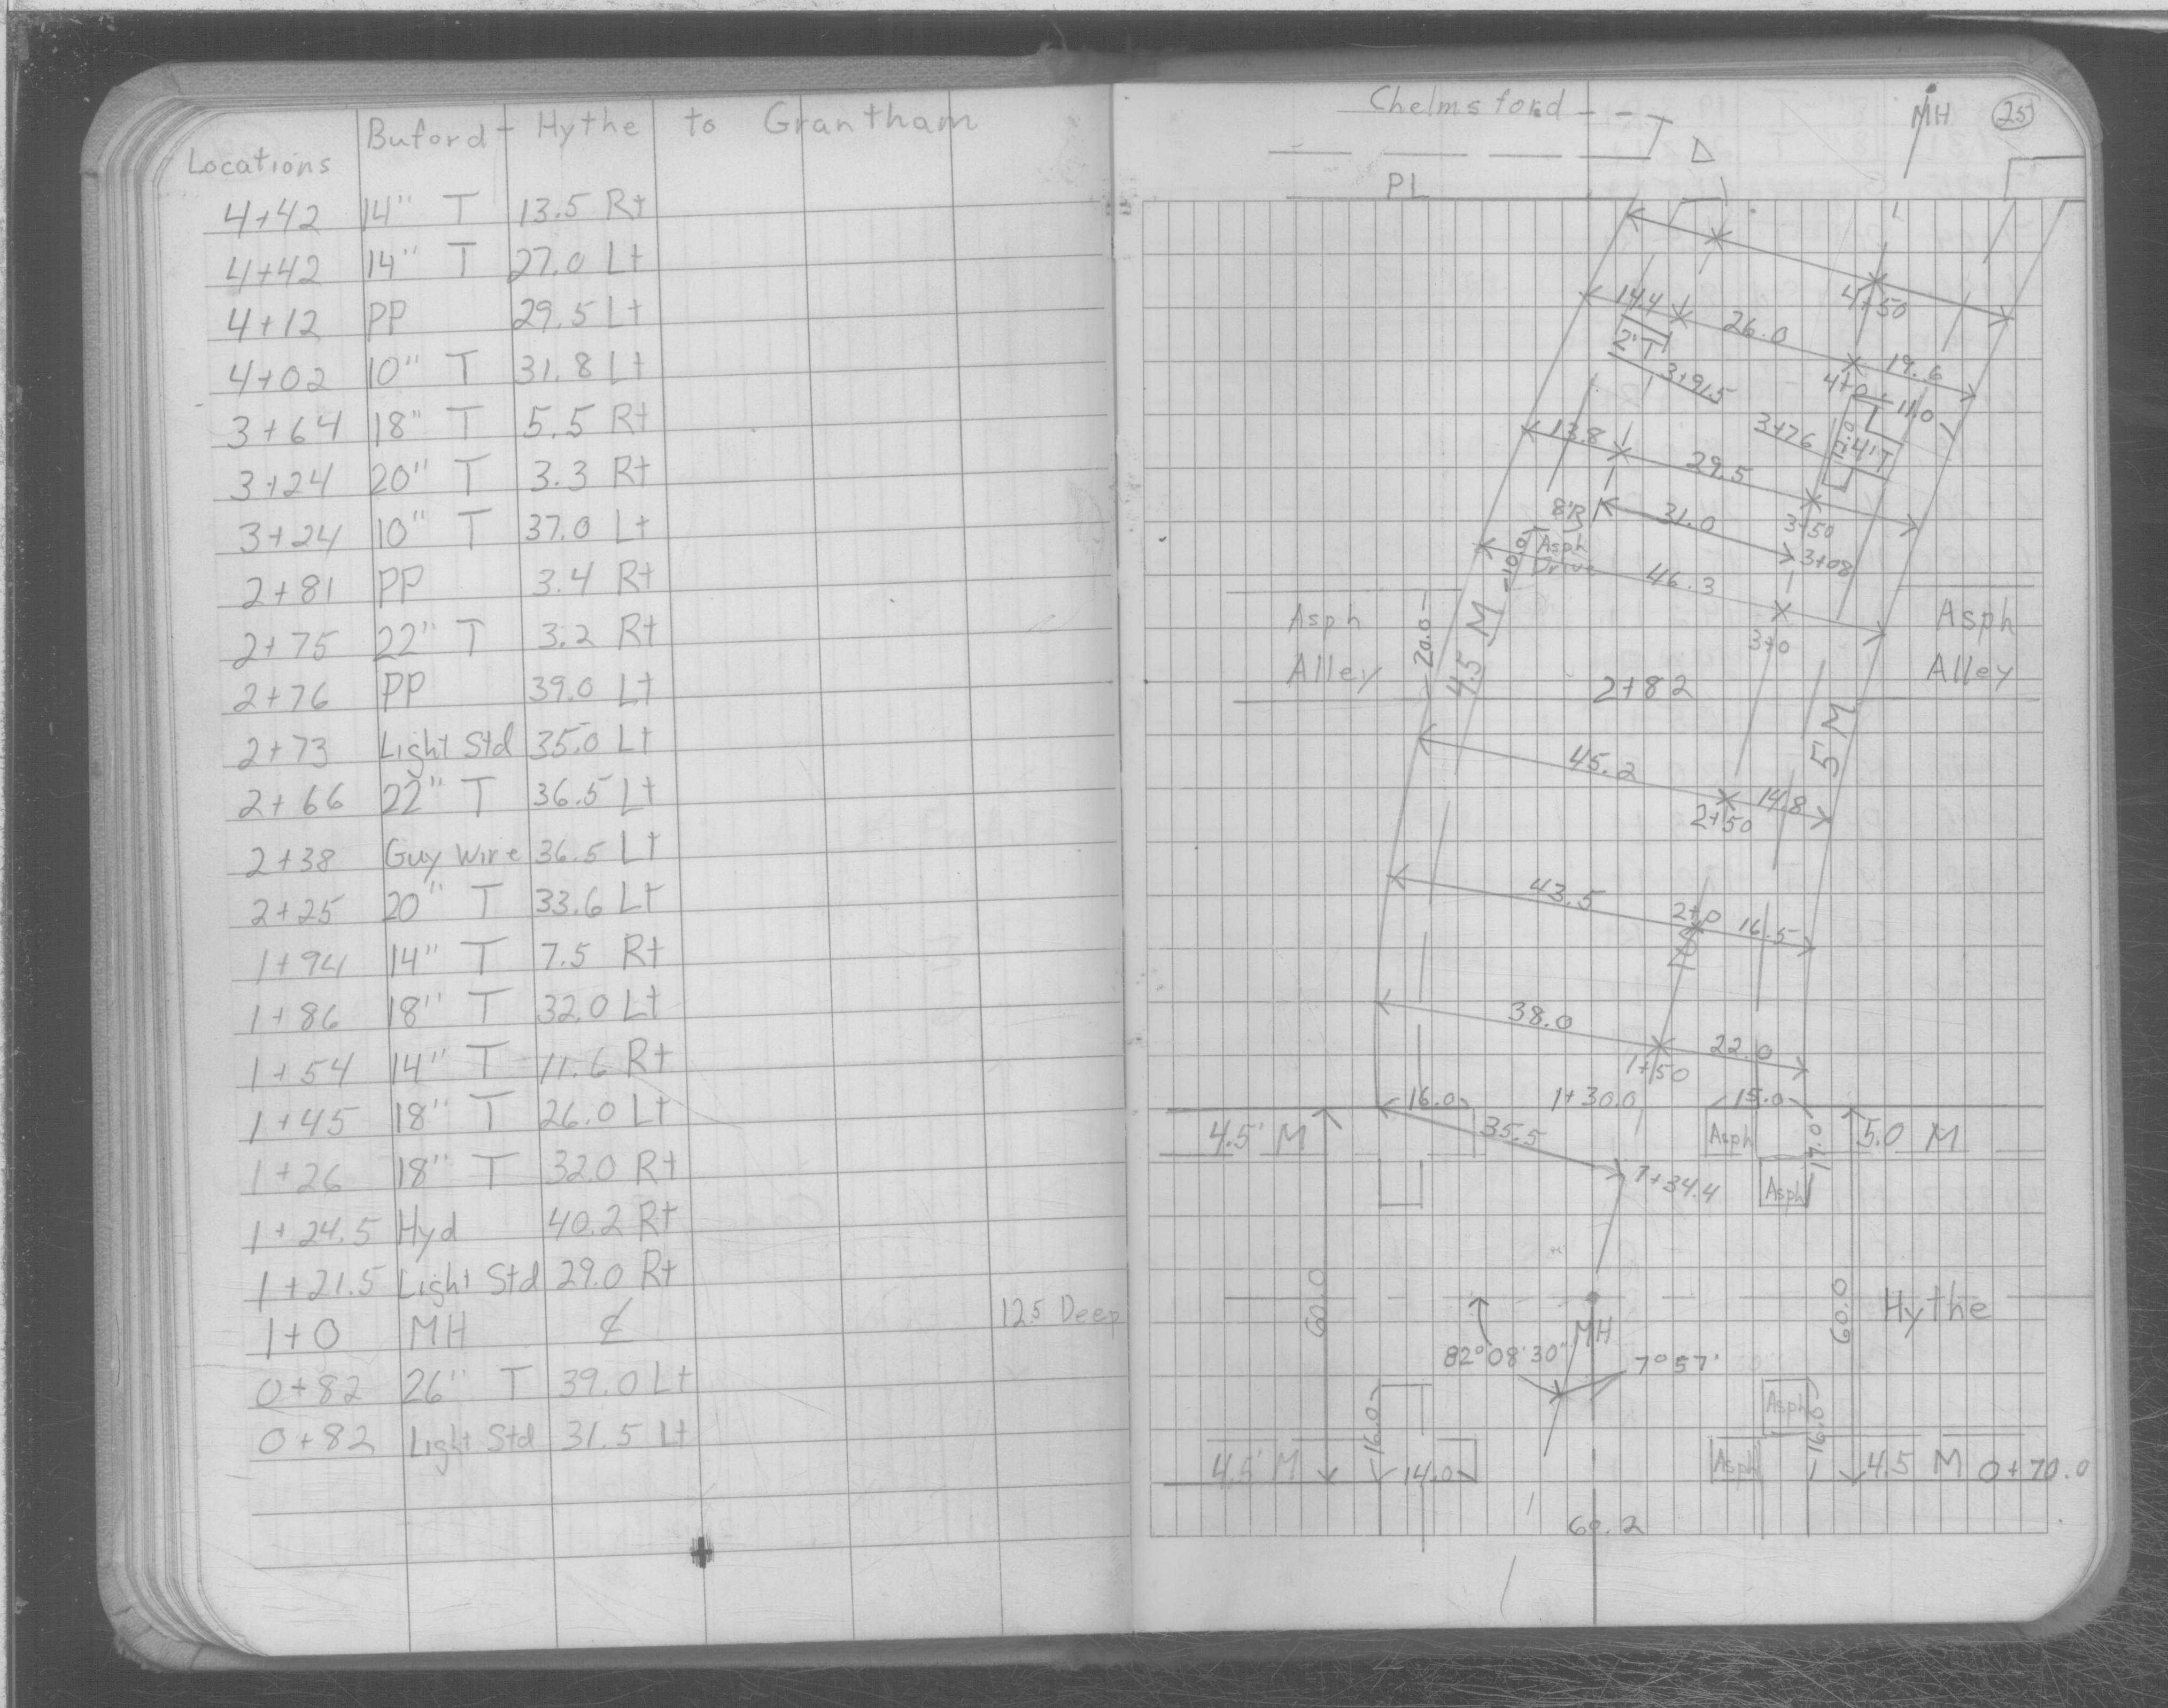 Buford - Hythe to Grantham
Locations
4+42 14" T 13.5 Rt
4+42 14" T 27.0 Lt
4+12 PP 29.5 Lt
4+02 10" T 31.8 Lt
3+64 18" T 5.5 Rt
3+24 20" T 3.3 Rt
3+24 10" T 37.0 Lt
2+81 PP 3.4 Rt
2+75 22" T 3.2 Rt
2+76 PP 39.0 Lt
2+73 Light Std 35.0 Lt
2+66 22" T 36.5 Lt
2+38 Guy Wire 36.5 Lt
2+25 20" T 33.6 Lt
1+94 14" T 7.5 Rt
1+86 18" T 32.0 Lt
1+54 14" T 11.6 Rt
1+45 18" T 26.0 Lt
1+26 18" T 32.0 Rt
1+24.5 Hyd 40.2 Rt
1+21.5 Light Std 29.0 Rt
1+0 MH ₵ 12.5 Deep
0+82 26" T 39.0 Lt
0+82 Light Std 31.5 Lt
Chelmsford
MH 25
PL
4+50
14.4 26.0 19.6
2'T
3+91.5
4+0
11.0
3+76
4'T
13.8 29.5
8'R 31.0 3+50
10.0 Asph Drive 3+08
46.3
3+0
Asph Alley
20.0
4.5 M
2+82
5 M
Asph Alley
45.2 14.8
2+50
43.5 2+0 16.5
38.0 22.0
1+50
16.0 1+30.0 15.0
4.5' M 35.5 Asph 17.0 5.0 M
1+34.4 Asph
60.0 60.0 Hythe
MH
82°08'30" 7°57'
16.0 Asph 16.0
4.5' M 14.0 Asph 4.5 M 0+70.0
60.2